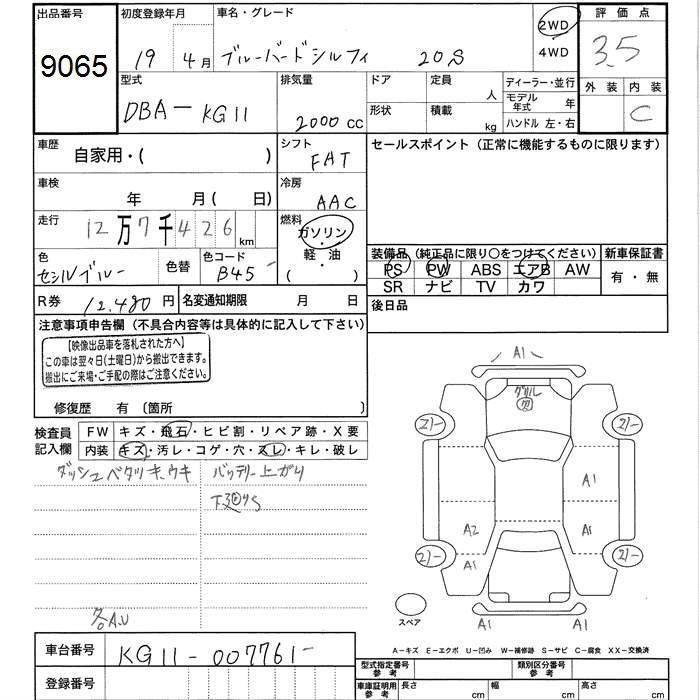 出品番号 初度登録年月 車名・グレード 2WD 評価点
9065 19年4月 ブルーバードシルフィ 20S 4WD 3.5
型式 排気量 ドア 定員 人 ディーラー・並行 外装 内装
DBA-KG11 2000cc 形状 積載 kg モデル年式 年 C
ハンドル 左・右
車歴 自家用・( ) シフト FAT セールスポイント(正常に機能するものに限ります)
車検 年 月( 日) 冷房 AAC
走行 12万7千426km 燃料 ガソリン・軽油・( )
色 セシルブルー 色替 色コード B45
装備品(純正品に限り○をつけてください) 新車保証書
PS PW ABS エアB AW 有・無
SR ナビ TV カワ
R券 12,480円 名変通知期限 月 日 後日品
注意事項申告欄(不具合内容等は具体的に記入して下さい)
【映像出品車を落札された方へ】
この車は翌々日(土曜日)から搬出できます。
搬出にご来場・ご手配の際はご注意ください。
修復歴 有〔箇所 〕
検査員記入欄 FW キズ・飛石・ヒビ割・リペア跡・X要
内装 キズ・汚レ・コゲ・穴・スレ・キレ・破レ
ダッシュベタツキ、ウキ バッテリー上がり
各A.U
A1
21- 21-
A1
A2
A1
21- 21-
A1 A1
スペア
A-キズ E-エクボ U-凹み W-補修跡 S-サビ C-腐食 XX-交換済
車台番号 KG11-007761-
登録番号
型式指定番号 参考 類別区分番号 参考
車庫証明用 参考 長さ cm 幅 cm 高さ cm